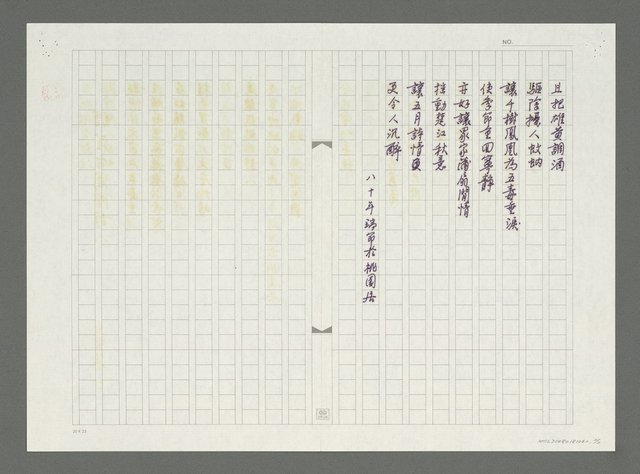 NO.
且把雄黃調酒
驅除擾人蚊蚋
讓千樹鳳凰為五毒垂淚
使季節重回寧靜
亦好讓家家蒲扇閒情
搖動楚江秋意
讓五月詩情
更令人沉醉
八十年端節於桃園居